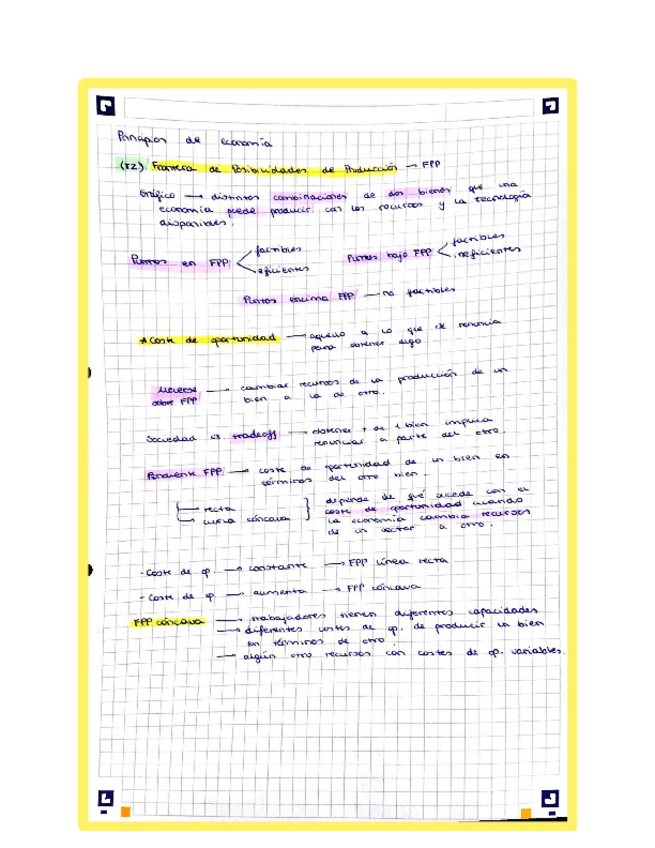 Principios de economía
(T2) Frontera de Posibilidades de Producción → FPP
Gráfico → distintas combinaciones de dos bienes que una
economía puede producir con los recursos y la tecnología
disponibles.
Puntos en FPP < factibles
eficientes
Puntos bajo FPP < factibles
ineficientes
Puntos encima FPP → no factibles
* Coste de oportunidad → aquello a lo que se renuncia
para obtener algo
Moverse sobre FPP → cambiar recursos de la producción de un
bien a la de otro.
Sociedad vs. tradeoff → obtener + de 1 bien implica
renunciar a parte del otro.
Pendiente FPP → coste de oportunidad de un bien en
términos del otro bien.
→ recta
→ curva cóncava
} depende de qué sucede con el
coste de oportunidad cuando
la economía cambia recursos
de un sector a otro.
- Coste de op. → constante → FPP línea recta
- Coste de op → aumenta → FPP cóncava
FPP cóncava → trabajadores tienen diferentes capacidades
→ diferentes costes de op. de producir un bien
en términos de otro
→ algún otro recursos con costes de op. variables.